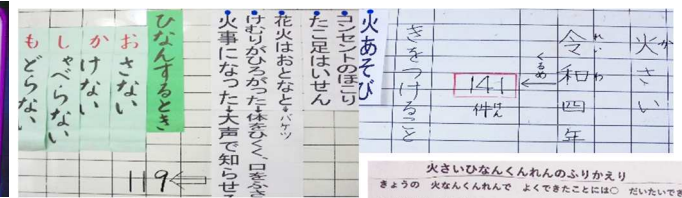 火さい
令和四年
れいわ
くるめ
141
件
けん
きをつけること
火あそび
コンセントのほこり
たこ足はいせん
花火はおとなと→バケツ
けむりがひろがった→体をひくく、口をふさ
火事になった→大声で知らせる
ひなんするとき
おさない
かけない
しゃべらない
もどらない
119←
火さいひなんくんれんのふりかえり
きょうの 火なんくんれんで よくできたことには○ だいたいでき